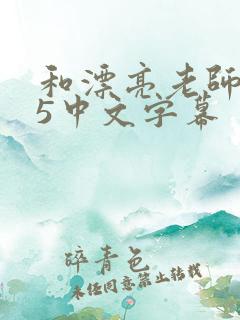 和漂亮老師
5中文字幕
碎青色
未经同意禁止转载